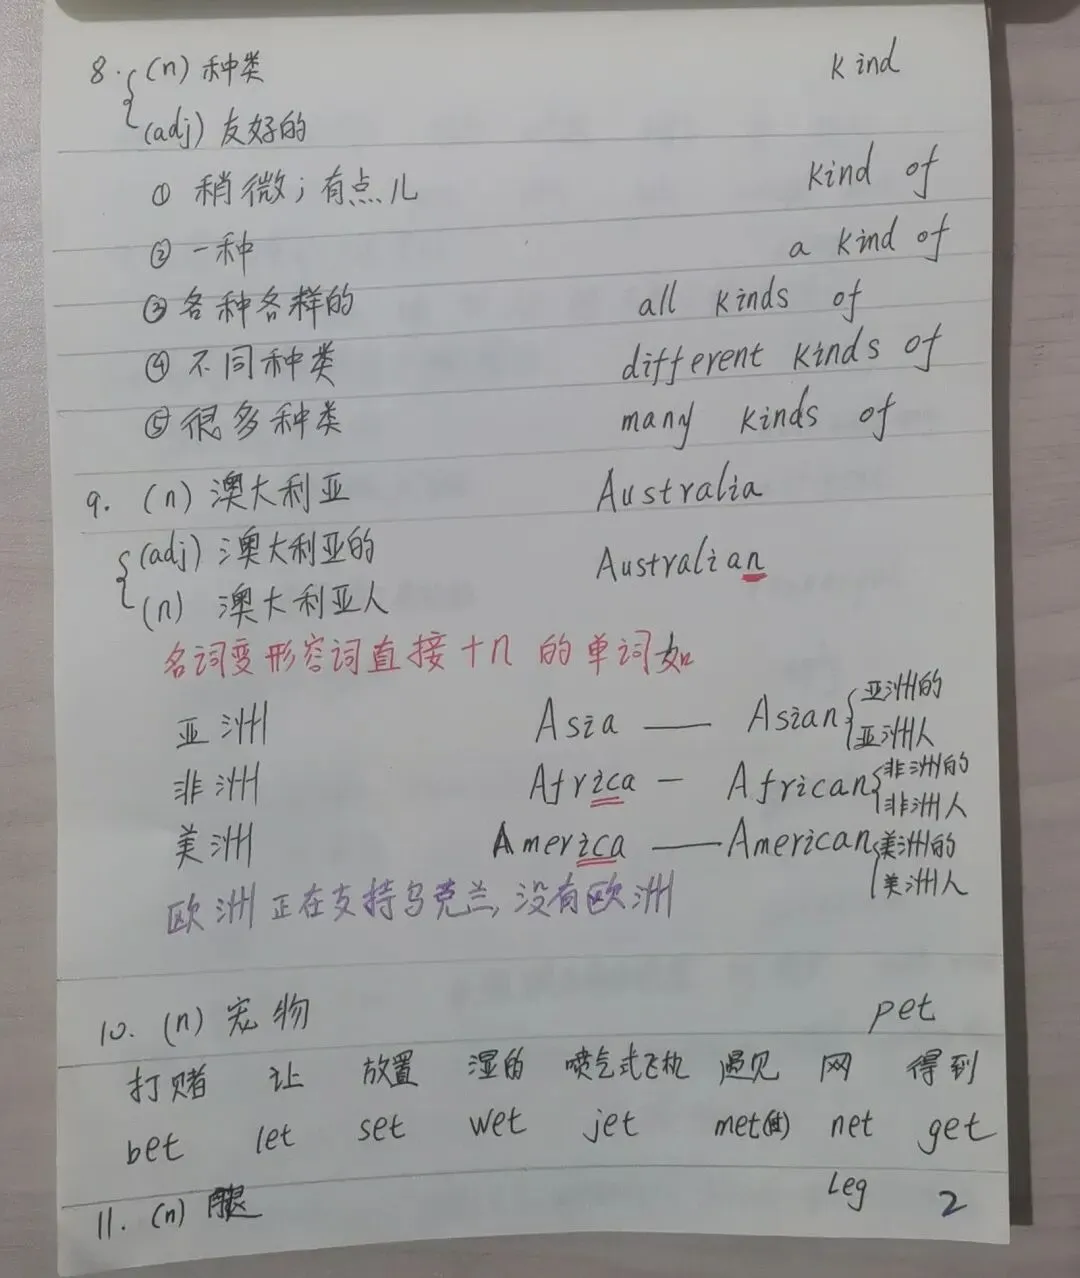 8. (n) 种类 kind
(adj) 友好的
① 稍微；有点儿 kind of
② 一种 a kind of
③ 各种各样的 all kinds of
④ 不同种类 different kinds of
⑤ 很多种类 many kinds of
9. (n) 澳大利亚 Australia
(adj) 澳大利亚的 Australian
(n) 澳大利亚人
名词变形容词直接+n 的单词如
亚洲 Asia — Asian 亚洲的
亚洲人
非洲 Africa — African 非洲的
非洲人
美洲 America — American 美洲的
美洲人
欧洲正在支持乌克兰, 没有欧洲
10. (n) 宠物 pet
打赌 让 放置 湿的 喷气式飞机 遇见 网 得到
bet let set wet jet met net get
11. (n) 腿 Leg 2